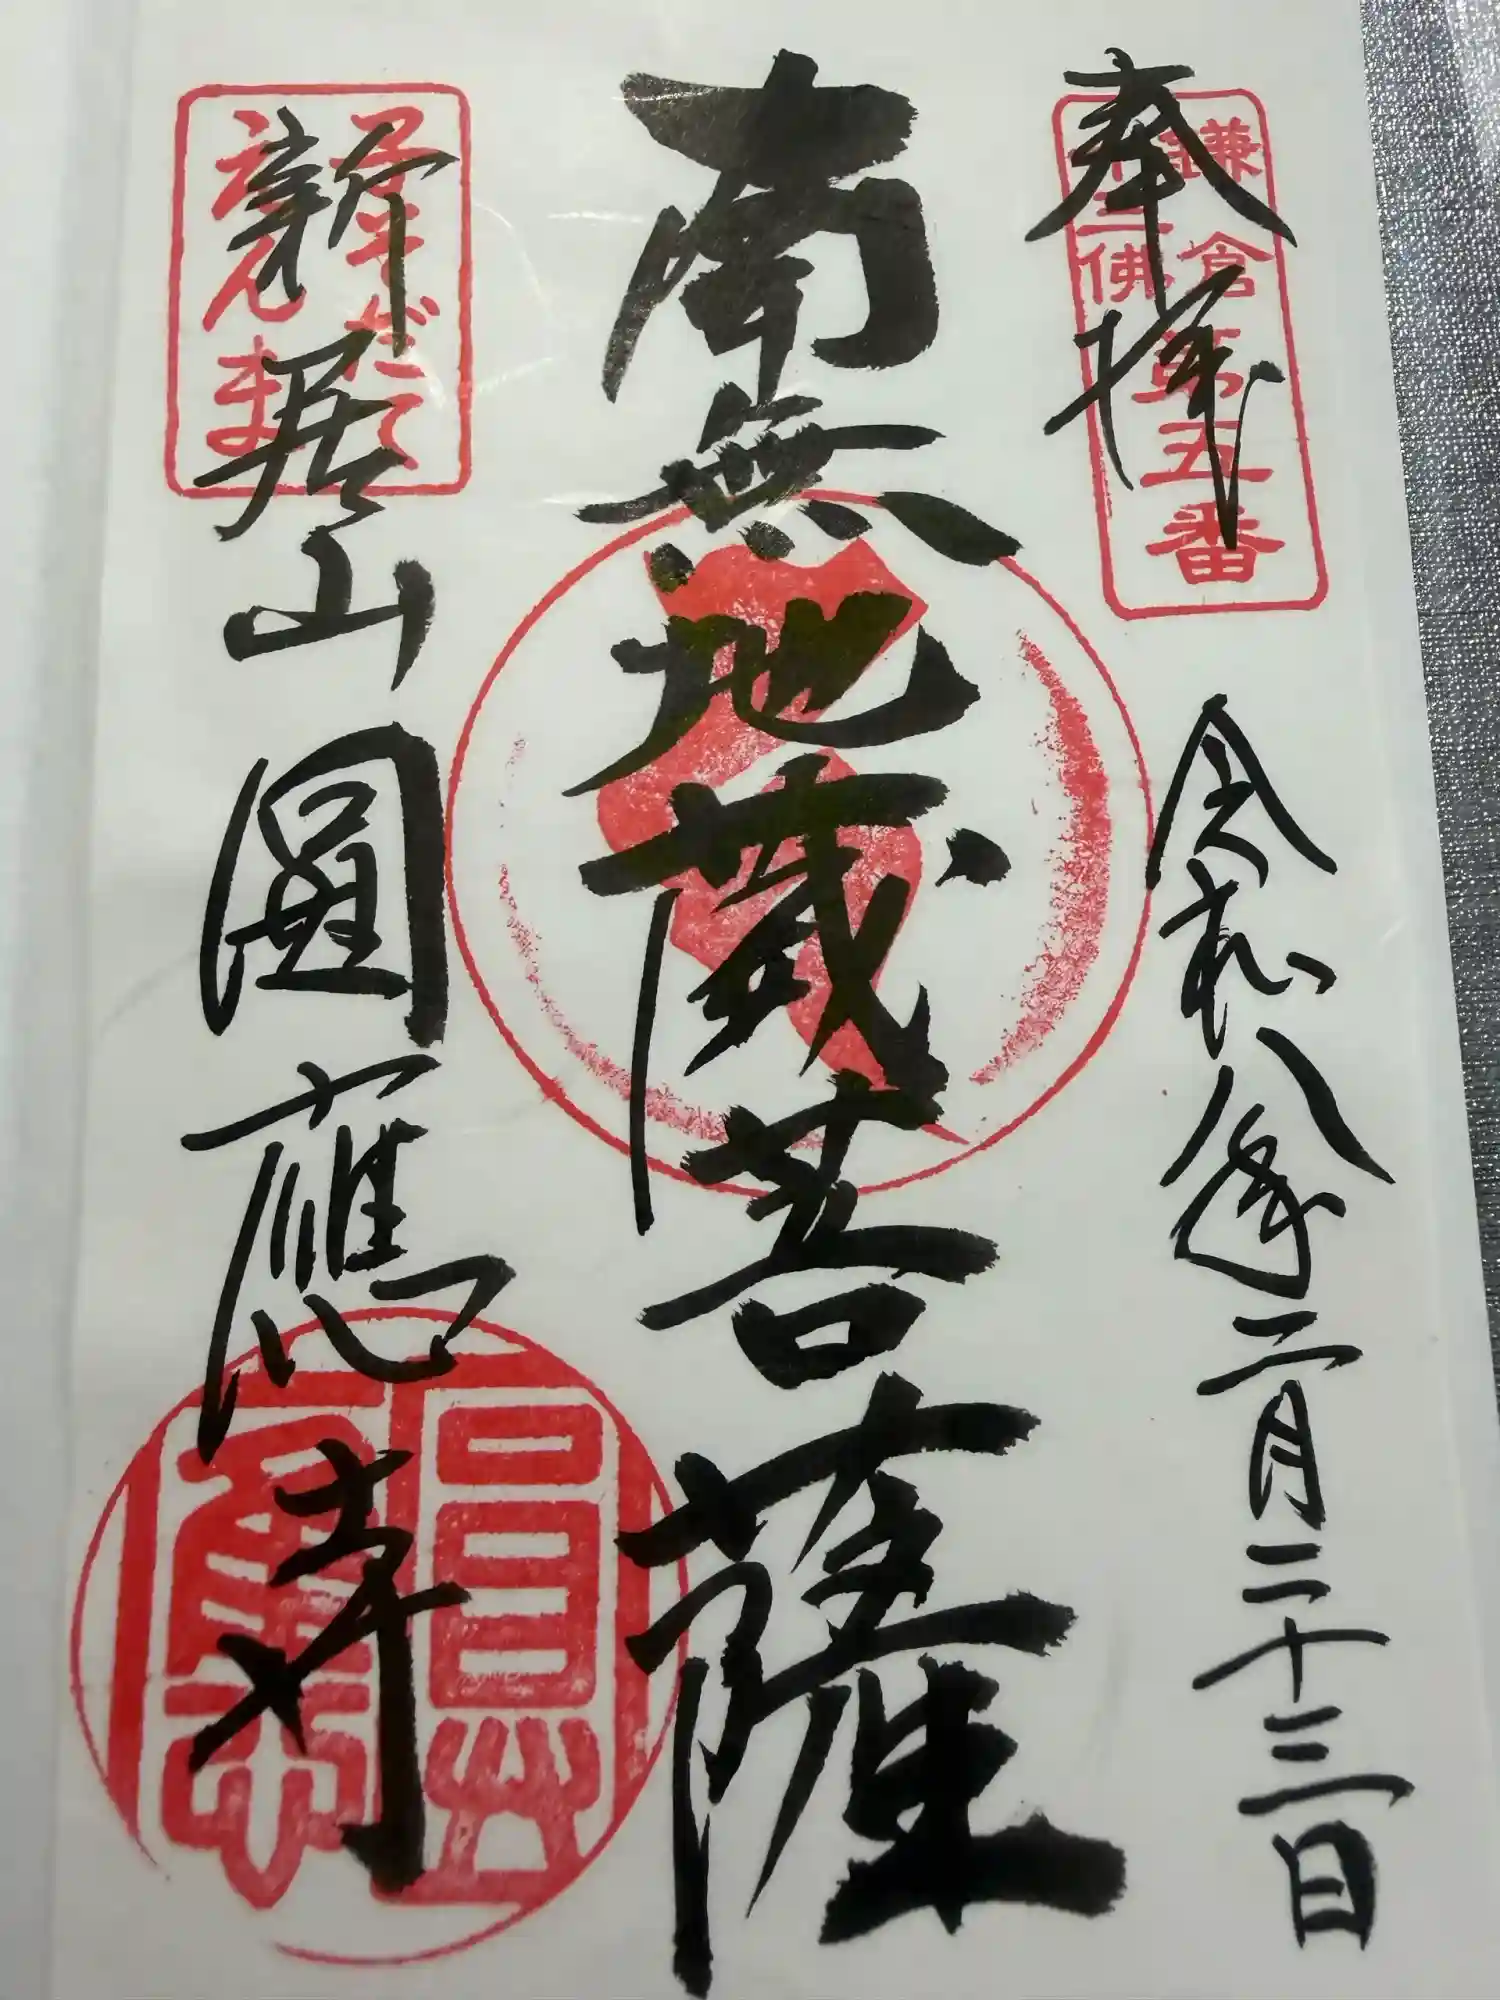 奉拝
鎌倉第五番
十三佛
令和八年二月二十三日
南無地蔵菩薩
新居山圓應寺
子そだて
えんま